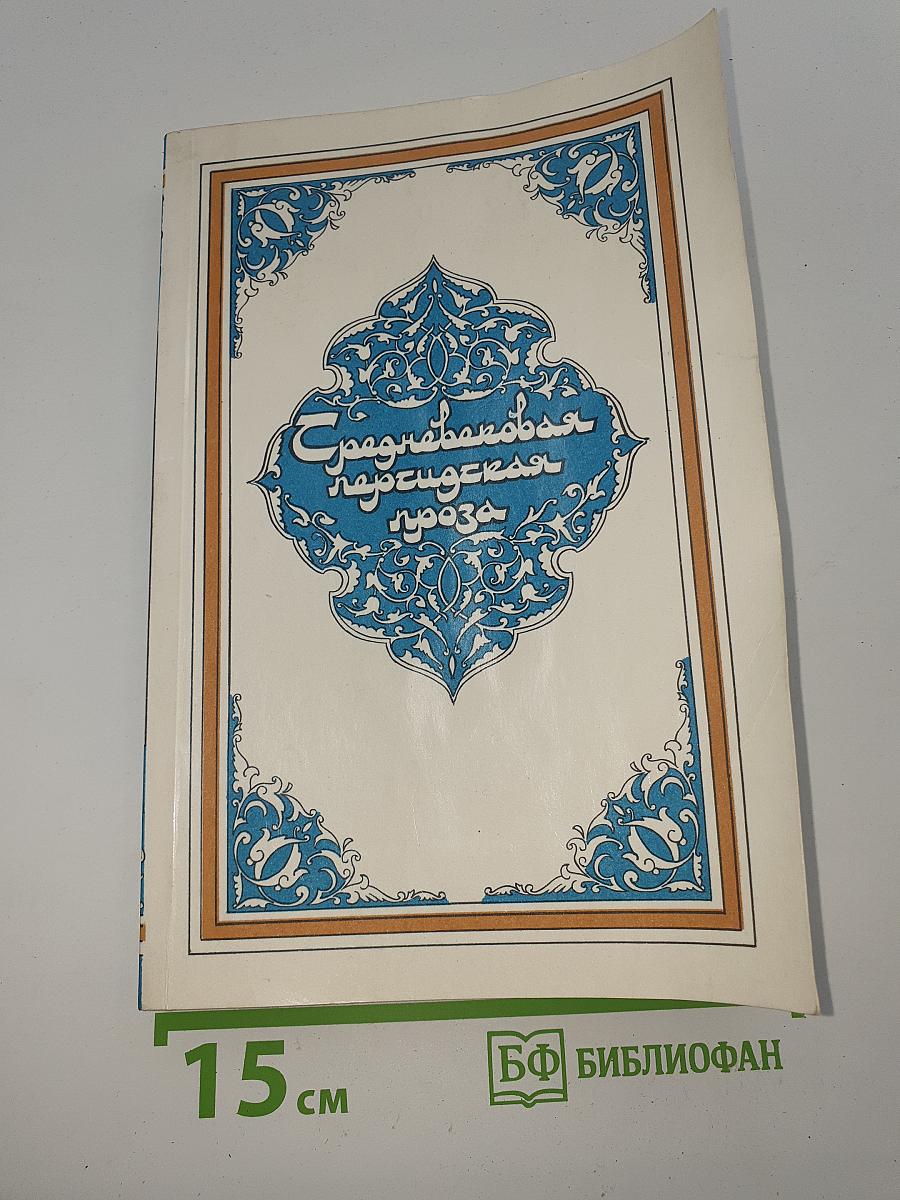 Средневековая
персидская
проза
15 см
БФ БИБЛИОФАН